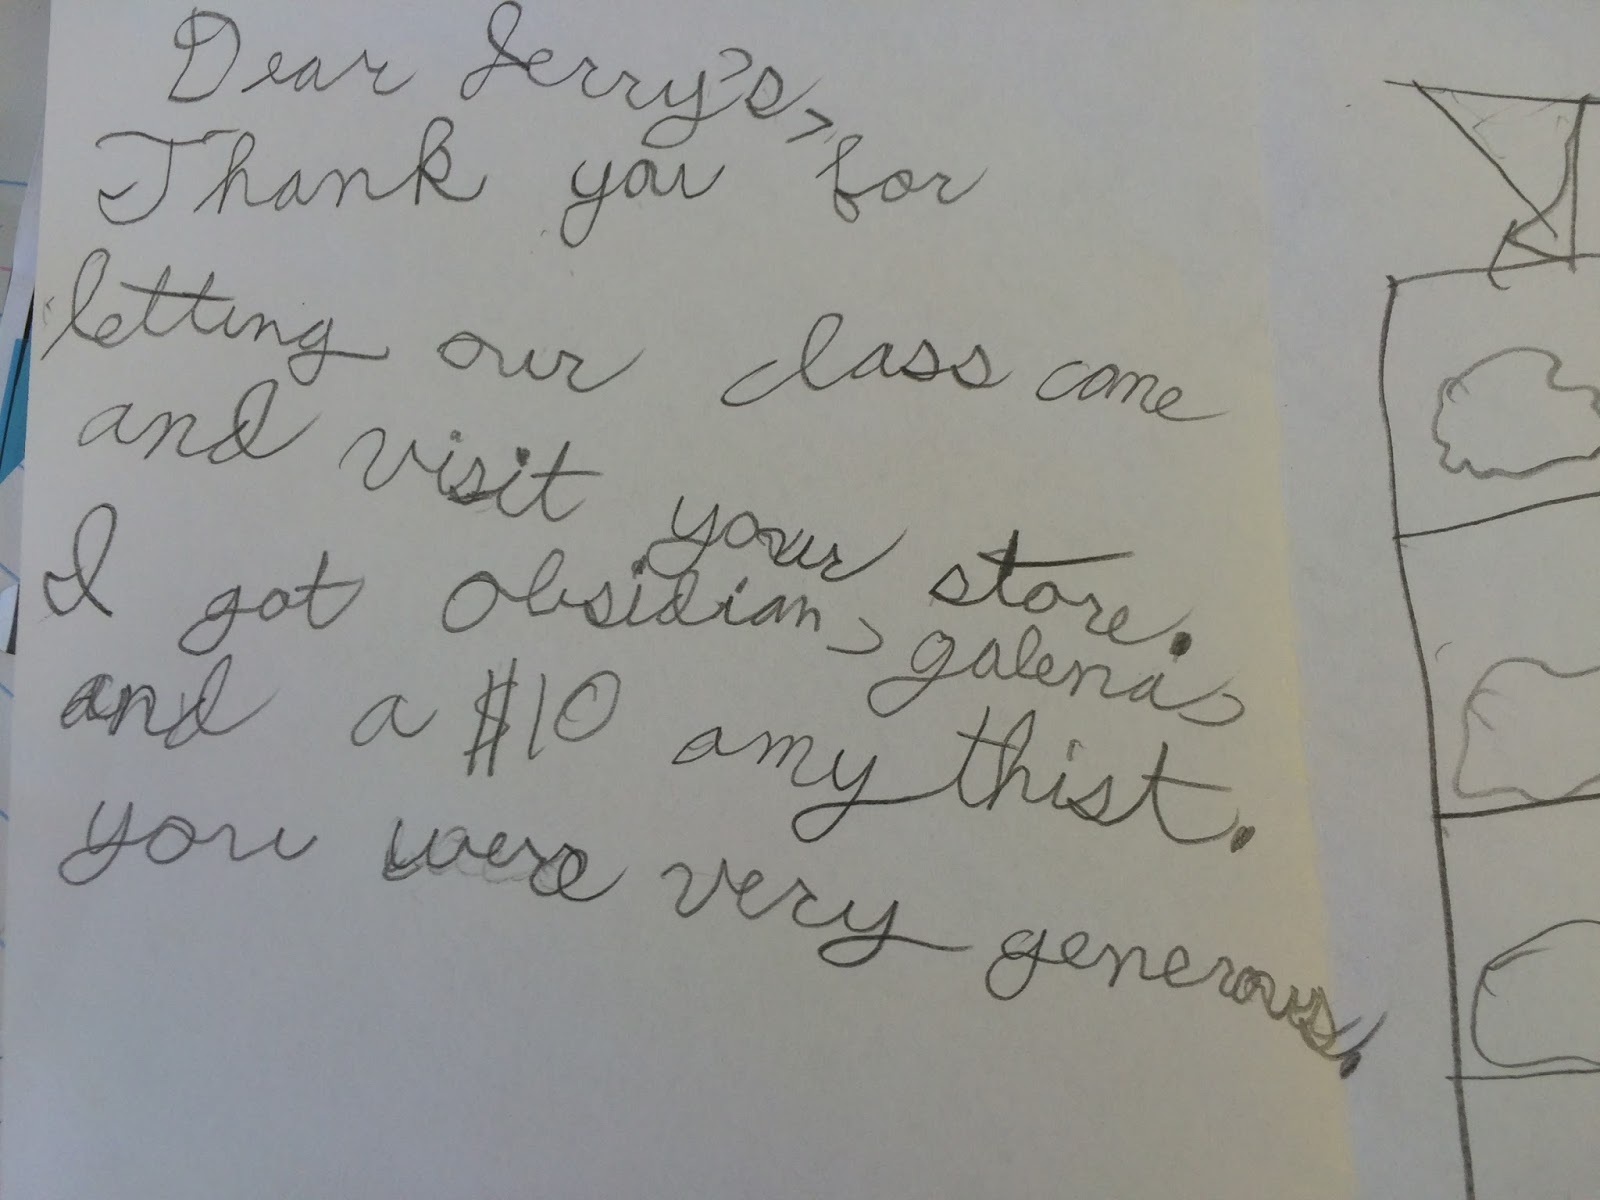 Dear Jerry's,
Thank you for
letting our class come
and visit your store.
I got obsidian, galena,
and a $10 amythist.
you were very generous.